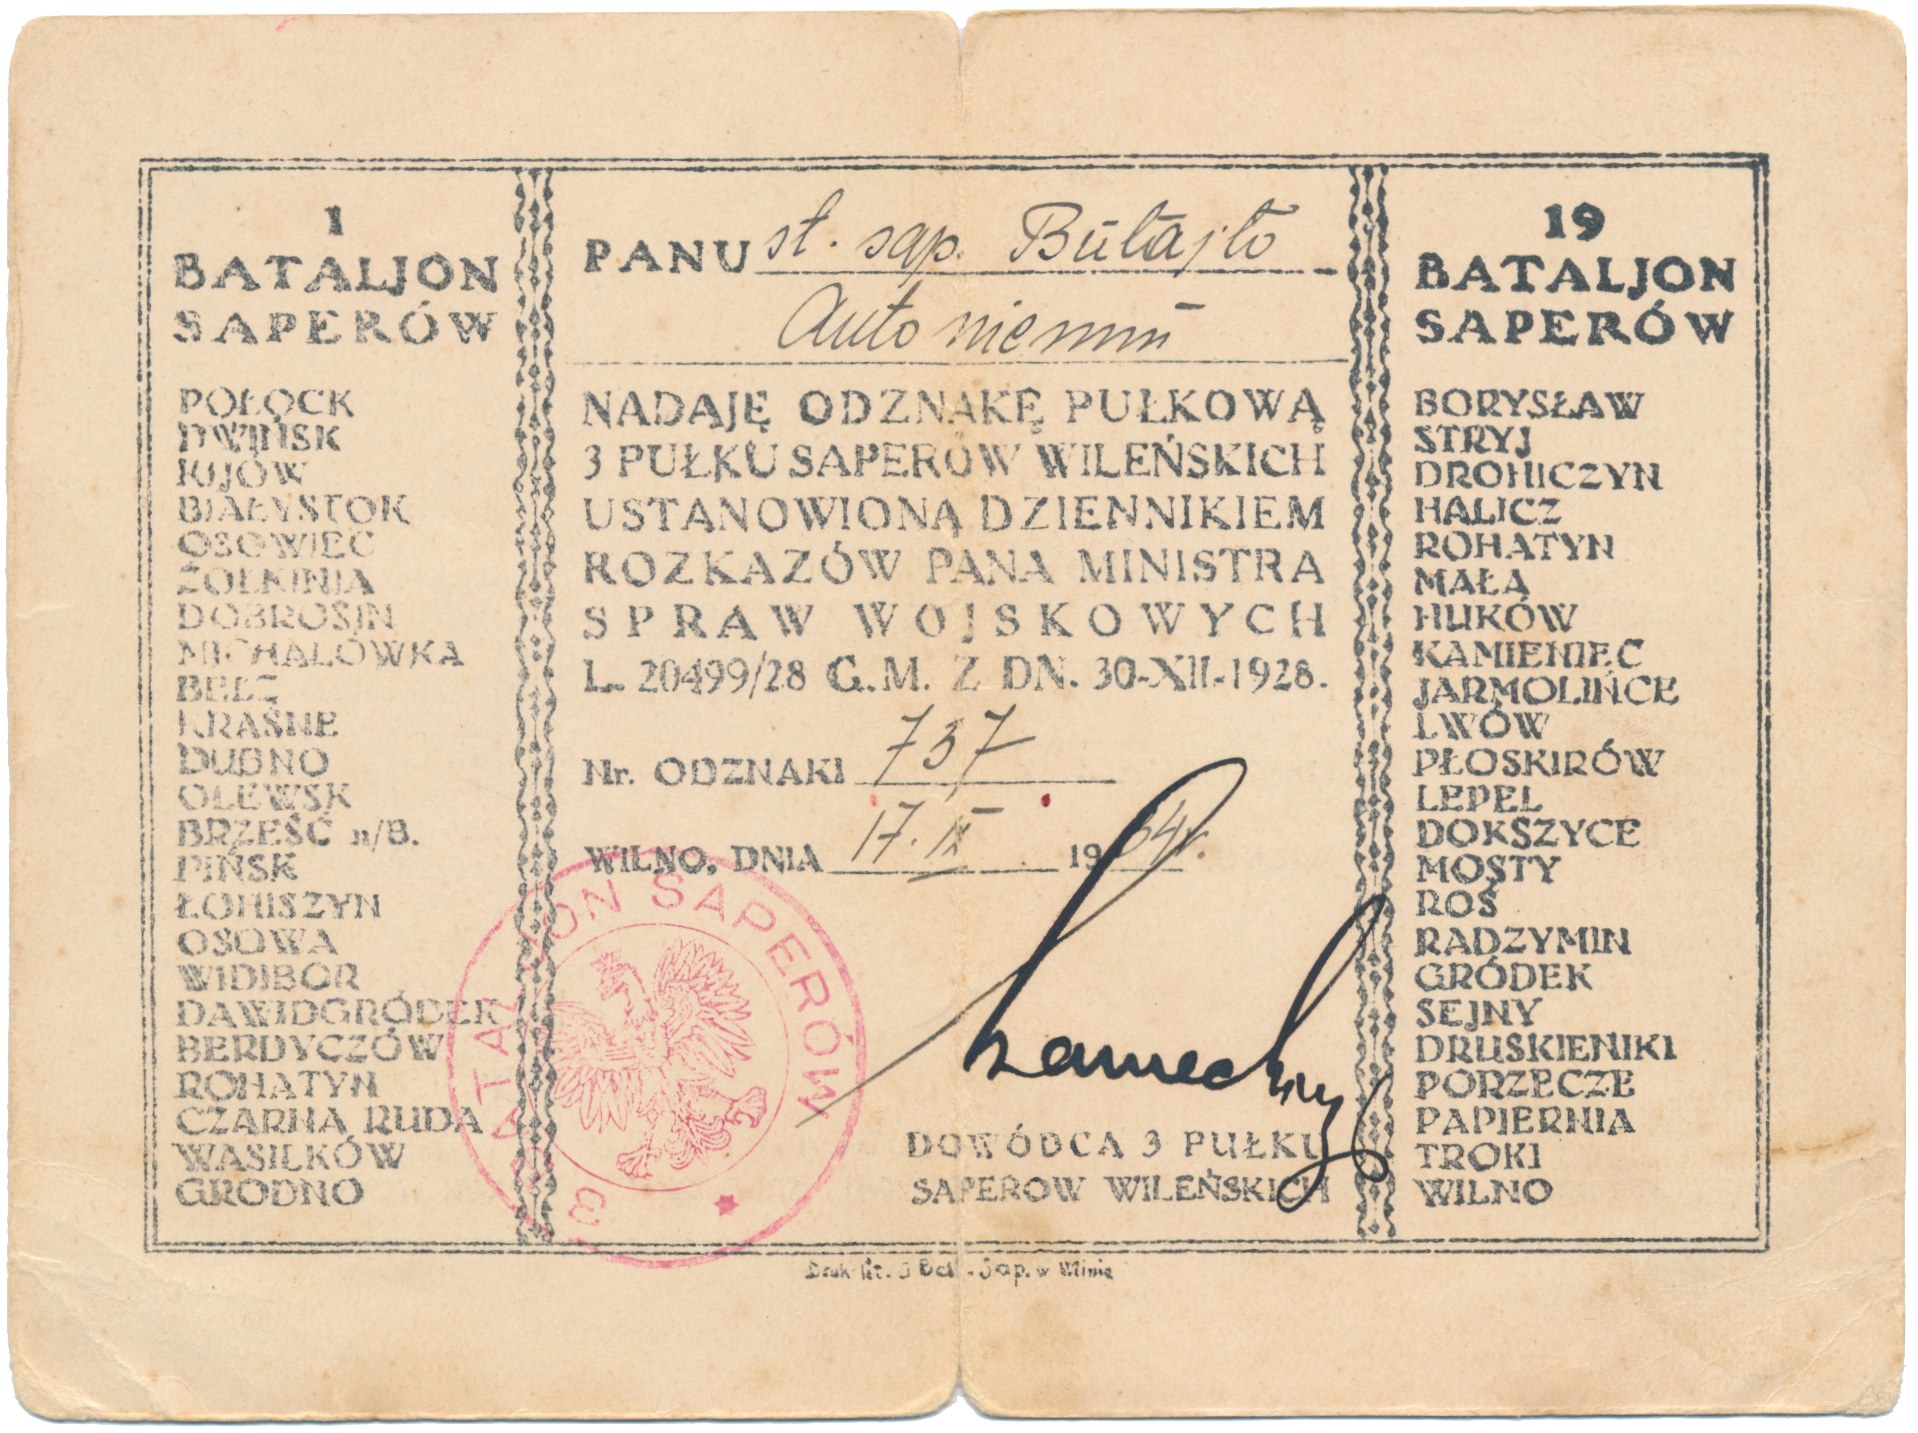 1
BATALJON
SAPERÓW
POŁOCK
DWIŃSK
KIJÓW
BIAŁYSTOK
OSOWIEC
ŻOŁKINIA
DOBROSIN
MICHALÓWKA
BEŁZ
KRAŚNE
DUBNO
OLEWSK
BRZEŚĆ n/B.
PIŃSK
ŁOHISZYN
OSOWA
WIDIBOR
DAWIDGRÓDEK
BERDYCZÓW
ROHATYN
CZARNA RUDA
WASILKÓW
GRODNO
PANU st. sap. Butajło
Antoniemu
NADAJĘ ODZNAKĘ PUŁKOWĄ
3 PUŁKU SAPERÓW WILEŃSKICH
USTANOWIONĄ DZIENNIKIEM
ROZKAZÓW PANA MINISTRA
SPRAW WOJSKOWYCH
L. 20499/28 G.M. Z DN. 30-XII-1928.
Nr. ODZNAKI 737
WILNO, DNIA 17. IX 1934r.
3 BATALJON SAPERÓW
DOWÓDCA 3 PUŁKU
SAPEROW WILEŃSKICH
19
BATALJON
SAPERÓW
BORYSŁAW
STRYJ
DROHICZYN
HALICZ
ROHATYN
MAŁA
HUKÓW
KAMIENIEC
JARMOLIŃCE
LWÓW
PŁOSKIRÓW
LEPEL
DOKSZYCE
MOSTY
ROŚ
RADZYMIN
GRÓDEK
SEJNY
DRUSKIENIKI
PORZECZE
PAPIERNIA
TROKI
WILNO
Druk lit. 3 Bat. Sap. w Wilnie